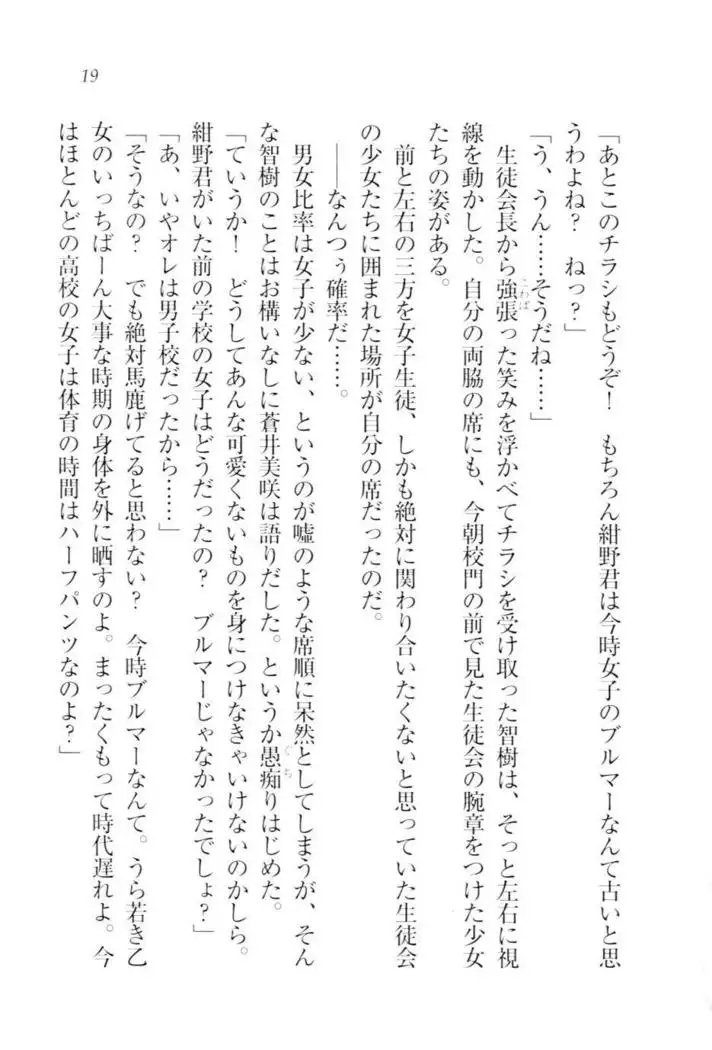 19
「あとこのチラシもどうぞ！　もちろん紺野君は今時女子のブルマーなんて古いと思
うわよね？　ねっ？」
「う、うん……そうだね……」
　生徒会長から強張った笑みを浮かべてチラシを受け取った智樹は、そっと左右に視
線を動かした。自分の両脇の席にも、今朝校門の前で見た生徒会の腕章をつけた少女
たちの姿がある。
　前と左右の三方を女子生徒、しかも絶対に関わり合いたくないと思っていた生徒会
の少女たちに囲まれた場所が自分の席だったのだ。
　――なんつぅ確率だ……。
　男女比率は女子が少ない、というのが嘘のような席順に呆然としてしまうが、そん
な智樹のことはお構いなしに蒼井美咲は語りだした。というか愚痴りはじめた。
「ていうか！　どうしてあんな可愛くないものを身につけなきゃいけないのかしら。
紺野君がいた前の学校の女子はどうだったの？　ブルマーじゃなかったでしょ？」
「あ、いやオレは男子校だったから……」
「そうなの？　でも絶対馬鹿げてると思わない？　今時ブルマーなんて。うら若き乙
女のいっちばーん大事な時期の身体を外に晒すのよ。まったくもって時代遅れよ。今
はほとんどの高校の女子は体育の時間はハーフパンツなのよ？」